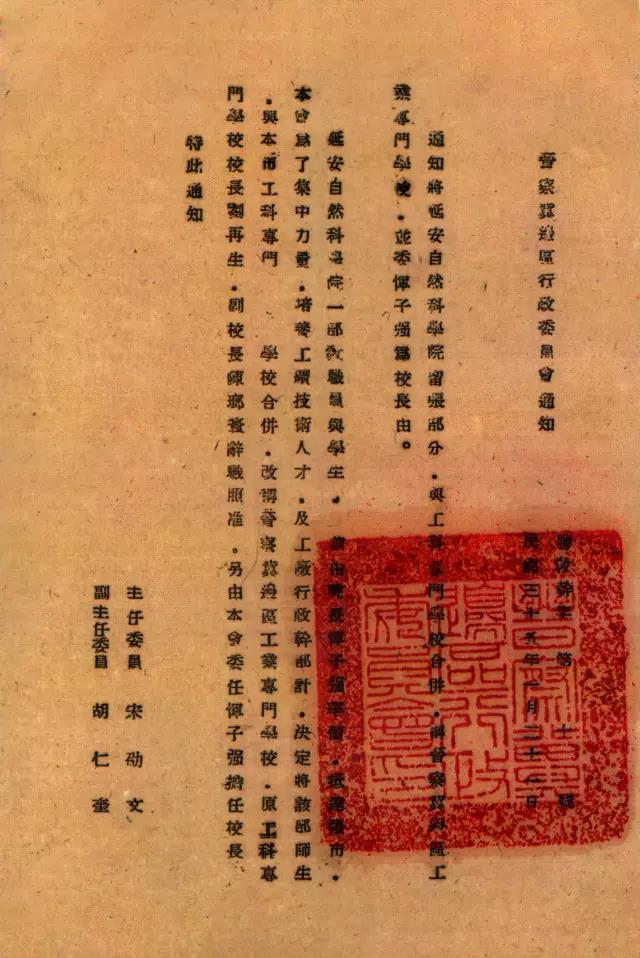 晉察冀邊區行政委員會通知
聯教幹字第十號
民國三十五年一月二十一日
通知將延安自然科學院留張部分．與工科專門學校合併．稱晉察冀邊區工
業專門學校．並委惲子强爲校長由。
延安自然科學院一部敎職員與學生．由院長惲子强率領．抵達張市．
本會爲了集中力量．培養工礦技術人才．及工廠行政幹部計．決定將該部師生
．與本市工科專門 學校合併．改稱晉察冀邊區工業專門學校．原工科專
門學校校長劉再生．副校長陳琅寰辭職照准。另由本會委任惲子强擔任校長
特此通知
主任委員 宋劭文
副主任委員 胡仁奎
晉察冀邊區行政委員會印